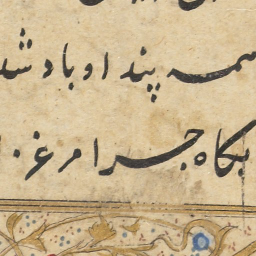 همه پند او باد شد
بگاه چرا مرغ